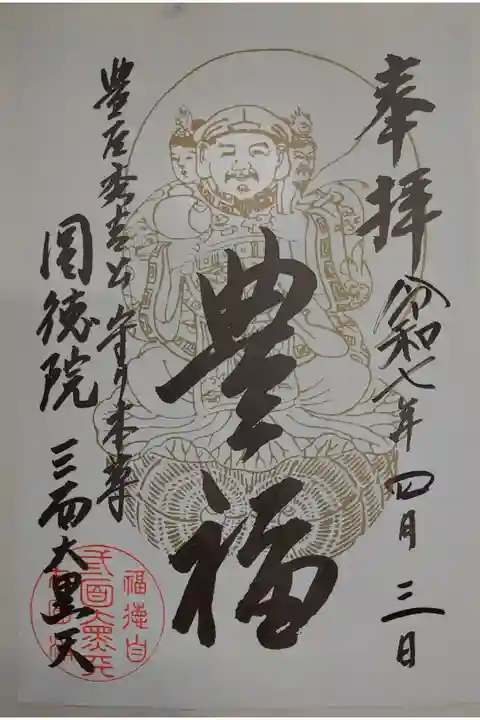 奉拝
令和七年四月三日
豊福
豊臣秀吉公守り本尊
圓徳院 三面大黒天
福徳自
三面大黒天